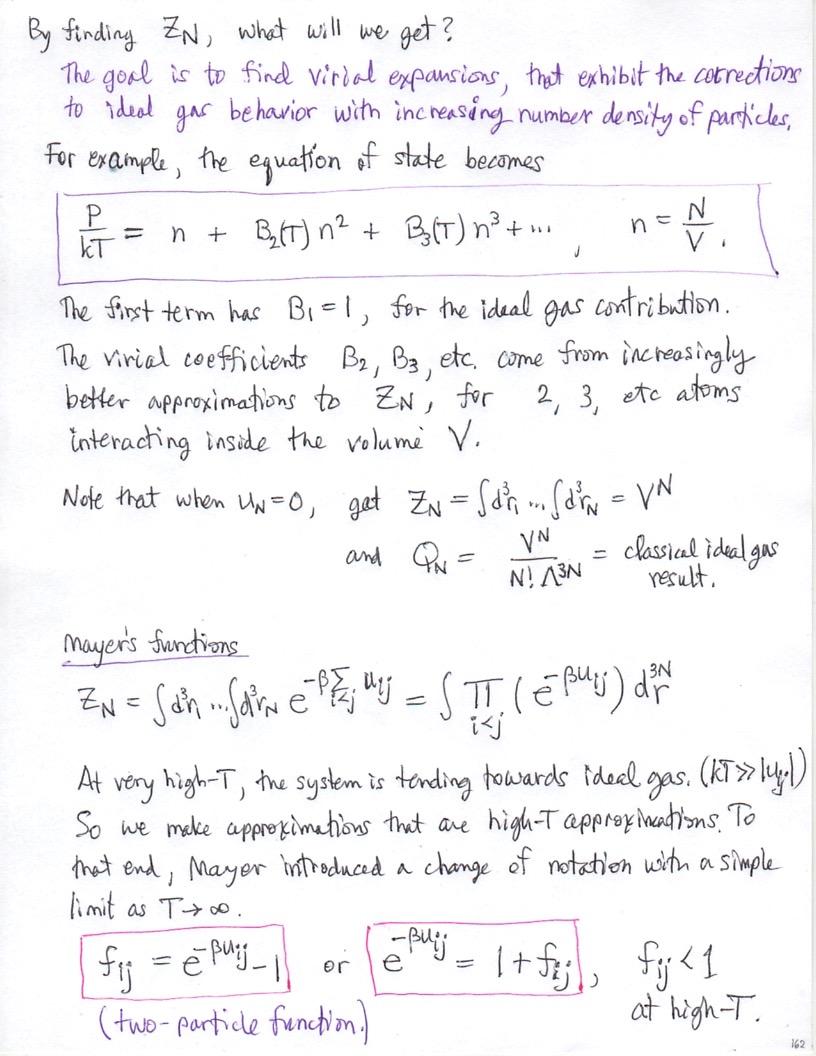 By finding Z_N, what will we get?
The goal is to find virial expansions, that exhibit the corrections
to ideal gas behavior with increasing number density of particles.
For example, the equation of state becomes
P/kT = n + B₂(T) n² + B₃(T) n³ + ..., n = N/V.
The first term has B₁ = 1, for the ideal gas contribution.
The virial coefficients B₂, B₃, etc. come from increasingly
better approximations to Z_N, for 2, 3, etc atoms
interacting inside the volume V.
Note that when U_N = 0, get Z_N = ∫d³r₁ ... ∫d³r_N = V^N
and Q_N = V^N / (N! Λ^3N) = classical ideal gas
result.
Mayer's functions
Z_N = ∫d³r₁ ... ∫d³r_N e^(-β Σ_{i<j} u_ij) = ∫ Π_{i<j} (e^(-βu_ij)) d^3N r
At very high-T, the system is tending towards ideal gas. (kT ≫ |u_ij|)
So we make approximations that are high-T approximations. To
that end, Mayer introduced a change of notation with a simple
limit as T → ∞.
f_ij = e^(-βu_ij) - 1 or e^(-βu_ij) = 1 + f_ij, f_ij < 1
(two-particle function.) at high-T.
162